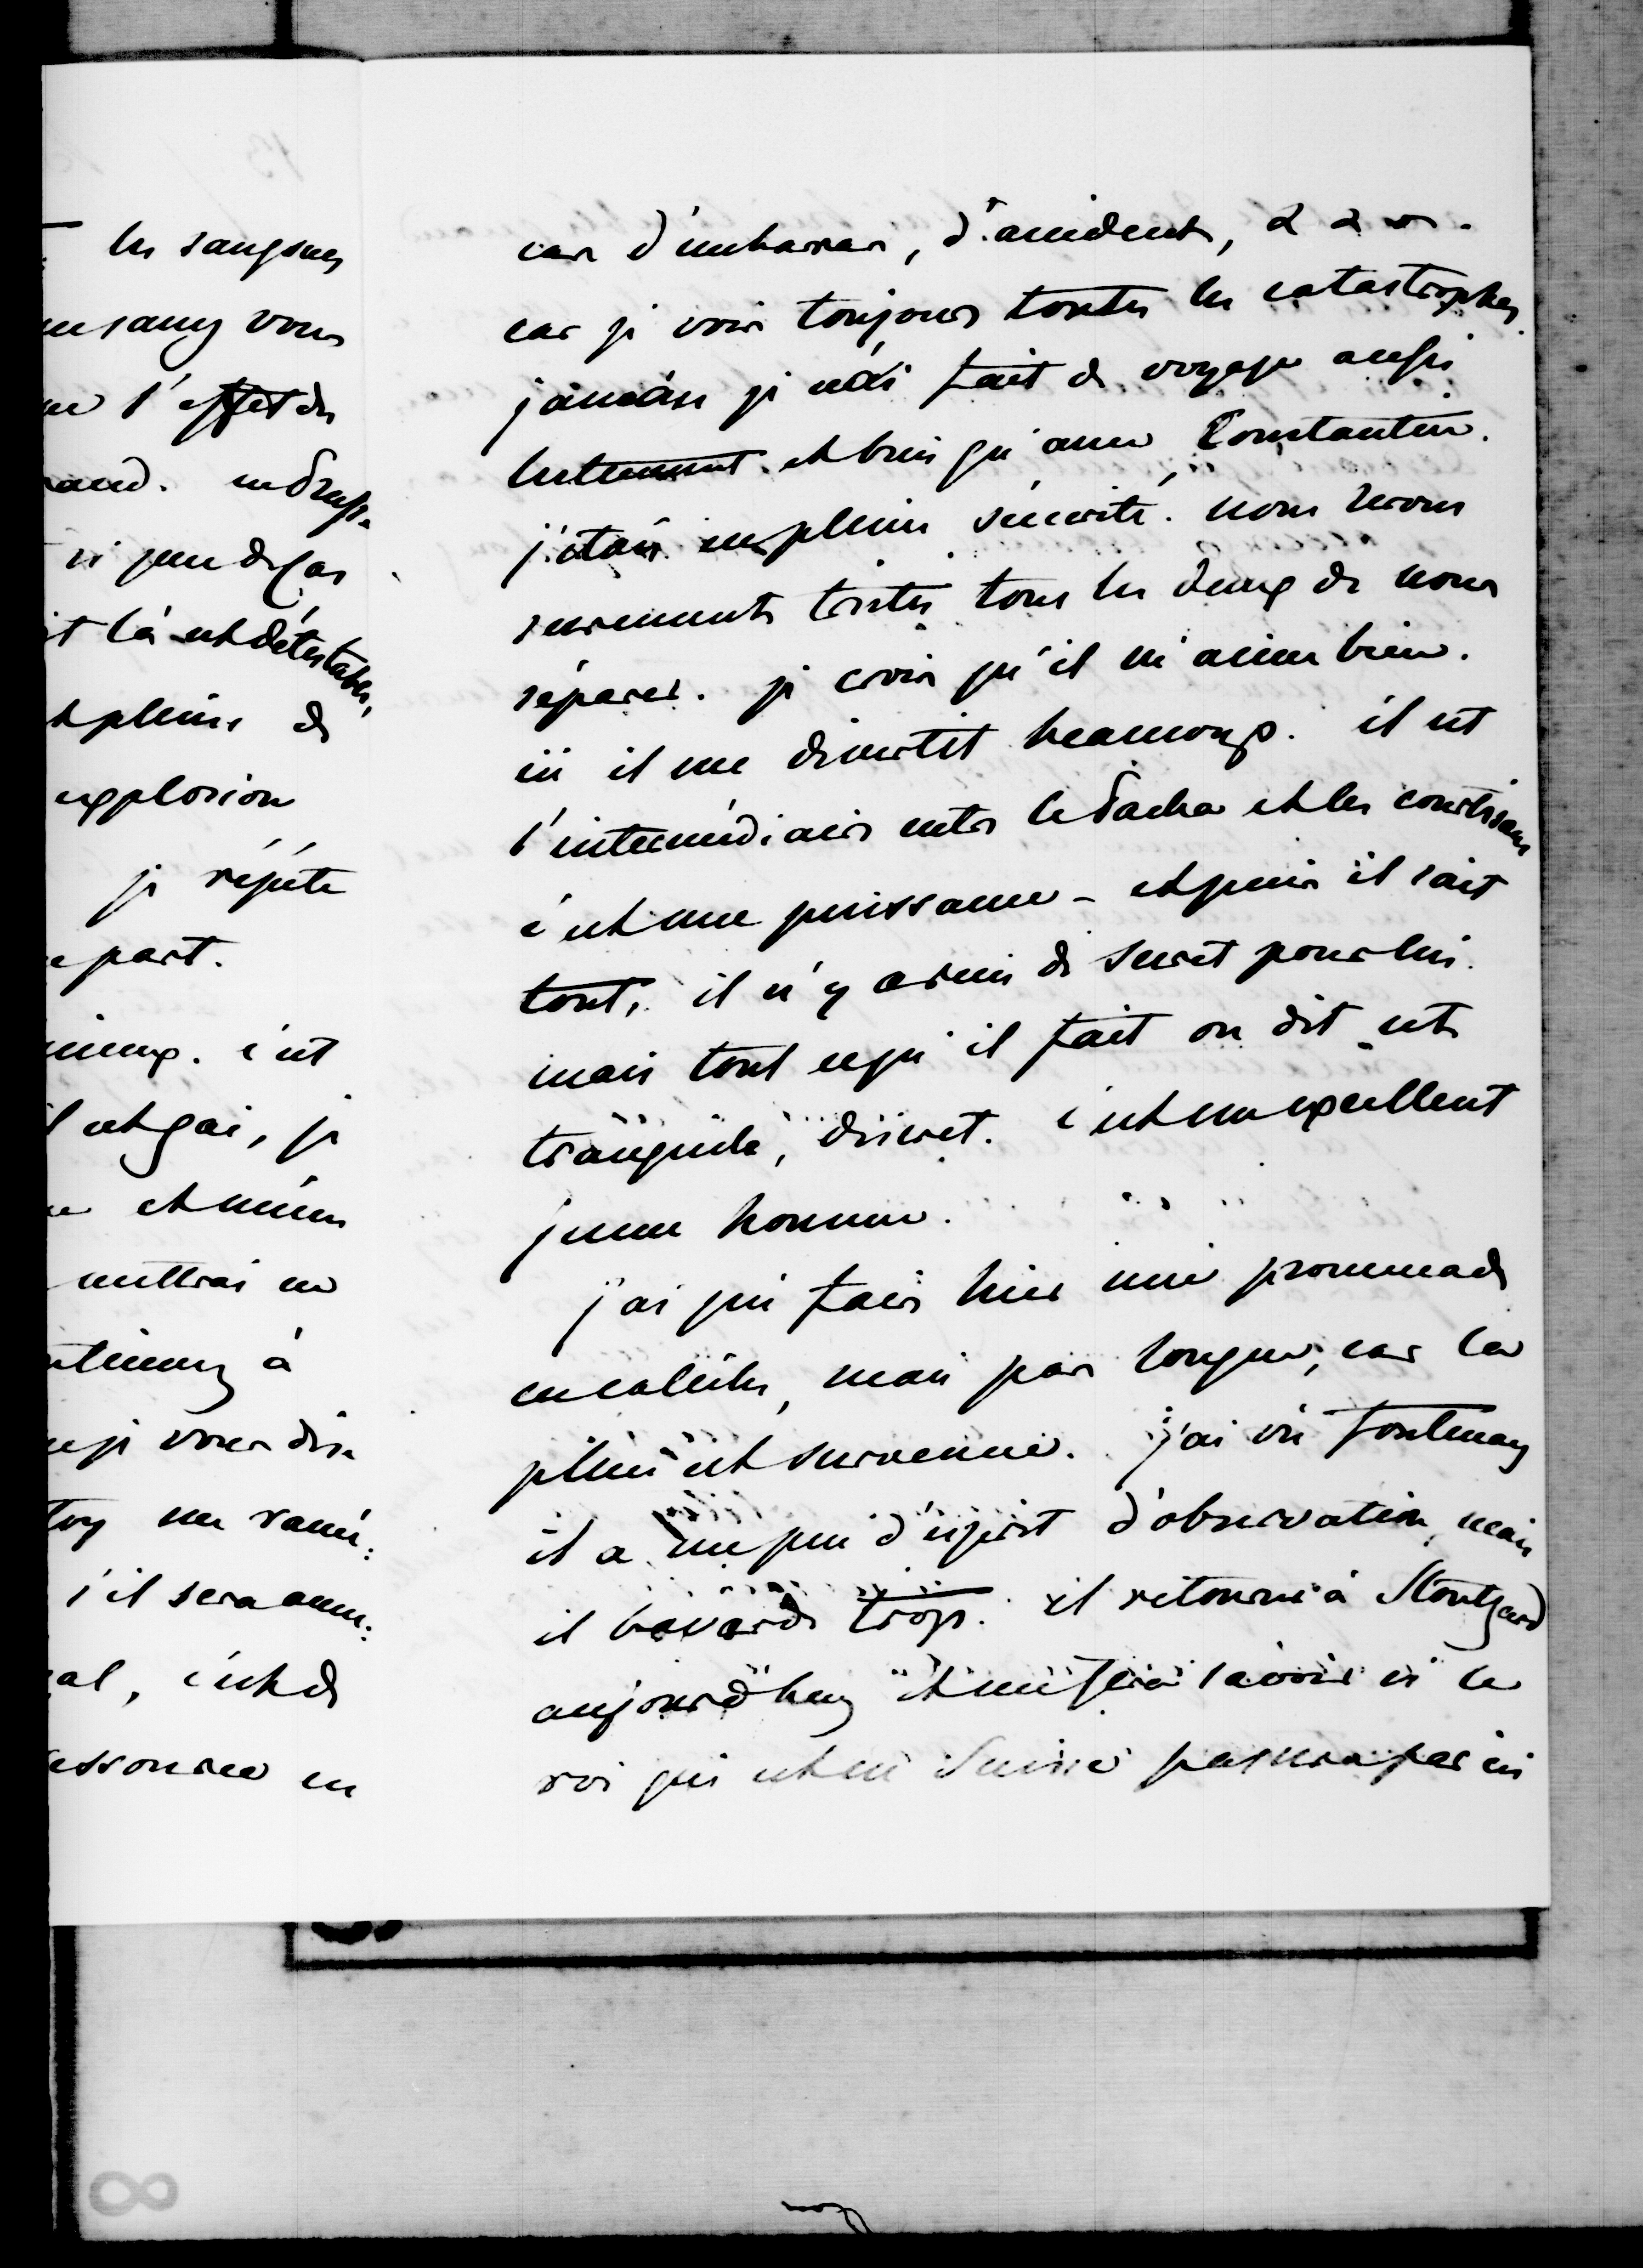 les sangsues
sang vous
l'effet des
si peu de cas
là est détestable,
pleine de
explosion
je répète
part.
c'est
est gai, je
et même
mettrai en
à
je vous dise
me
s'il sera
al, c'est de
en
cas d'embarras, d'accidents, &&&.
car je vois toujours toutes les catastrophes.
jamais je n'ai fait de voyage aussi
lestement et bien qu'avec Constantin.
j'étais en pleine sécurité. nous serons
surement tristes tous les deux de nous
séparer. je crois qu'il m'aime bien.
ici il me divertit beaucoup. il est
l'intermédiaire entre le Pacha et les courtisans
c'est une puissance - et puis il sait
tout, il n'y a rien de secret pour lui.
mais tout ce qu'il fait ou dit est
tranquille, discret. c'est un excellent
jeune homme.
j'ai pu faire hier une promenade
en calèche, mais pas longue, car la
pluie est survenue. j'ai vu Fontenay
il a un peu d'esprit d'observation, mais
il bavarde trop. il retourne à Stoutgard
aujourd'huy et me fera savoir si le
roi qui est en Suisse passera par ici